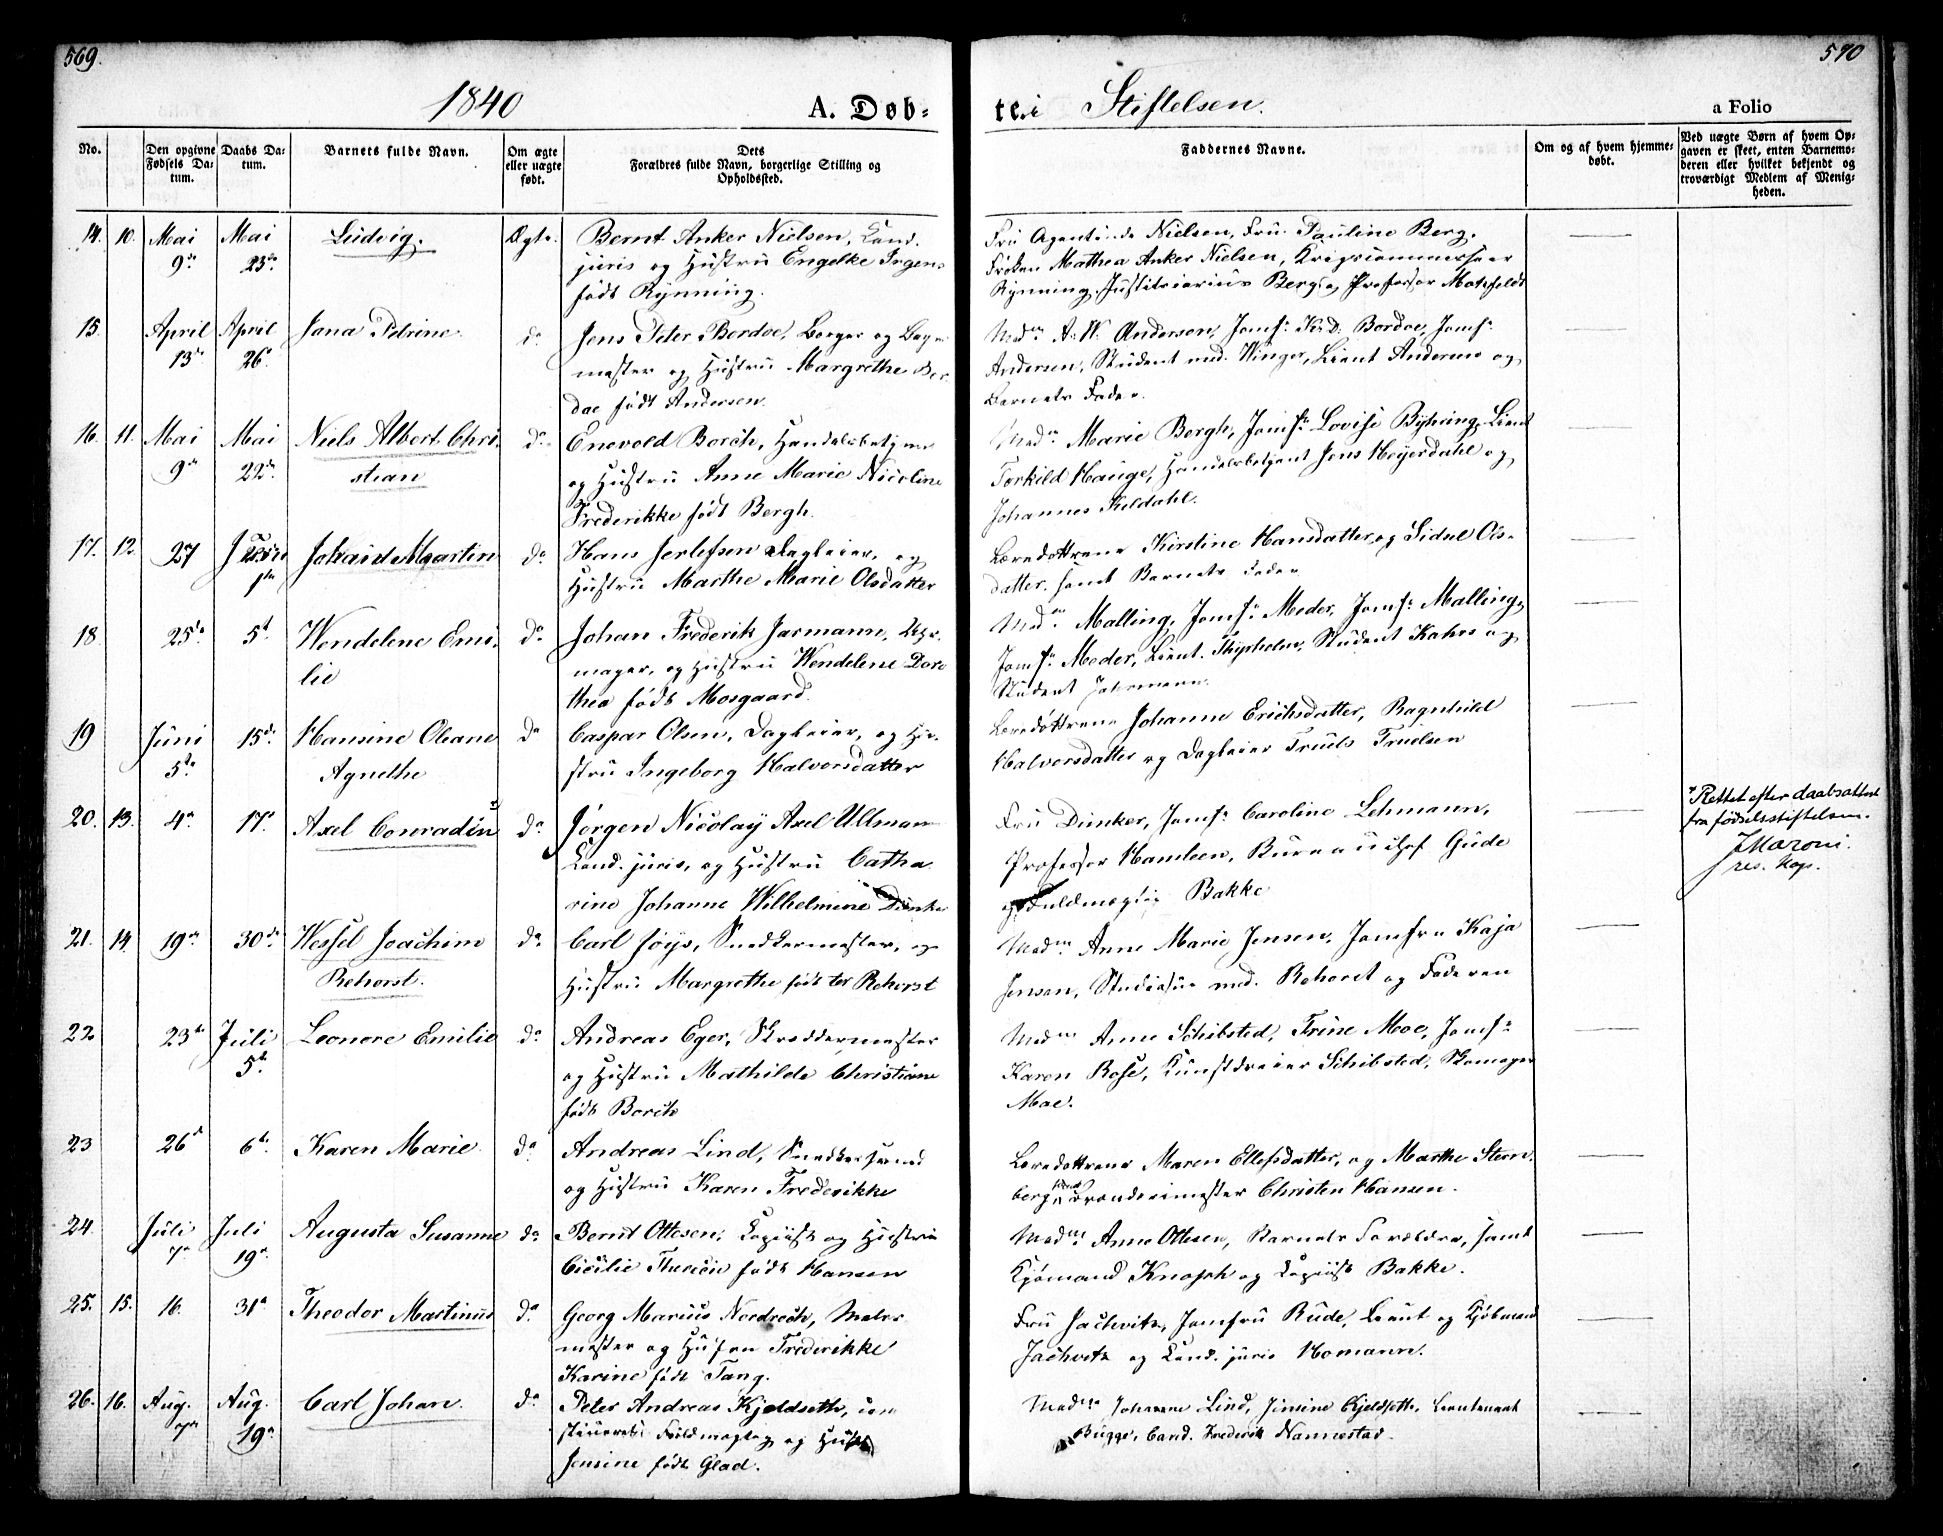 569.
570
1840
A. Døb-
te.i
Stiftelsen.
a Folio
No.
Den opgivne Fødsels Da-tum.
Daabs Da-tum.
Barnets fulde Navn.
Om ægte eller uægte født.
Dets
Forældres fulde Navn, borgerlige Stilling og
Opholdssted.
Faddernes Navne.
Om og af hvem hjemme-døbt.
Ved uægte Børn af hvem Op-
gaven er skeet, enten Barnemo-
deren eller hvilket bekjendt og
troværdigt Medlem af Menig-
heden.
14. 10. Mai 9de Mai 23de Ludvig. Ægte. Bernt Anker Nielsen, Cand.
juris og Hustru Engelke Irgens
født Rynning.
Fru Agentinde Nielsen, Fru Pauline Berg,
Frøken Mathea Anker Nielsen, Krigscommissair
Rynning, Justitiarius Berg og Professor Motzfeldt
15. April 13de April 26de Jana Petrine do Jens Peter Bordoe, Borger og Bag-
mester og Hustru Margrethe Bor-
doe født Andersen.
Madm A. W. Andersen, Jomfr Bordoe, Jomfr
Andersen, Student med. Winger, Lieut Andersen og
Barnets Fader.
16. 11. Mai 9de Mai 22de Niels Albert Chri-
stian do Enevold Borch, Handelsbetjent
og Hustru Anne Marie Nicoline
Frederikke født Bergh.
Madm Marie Bergh, Jomfr Lovise Byhring, Lieut
Torkild Hauge, Handelsbetjent Jens Heyerdahl og
Johannes Kildahl.
17. 12. 27 Juni Johan Martin do Hans Jerlefsen Dagleier, og
Hustru Marthe Marie Olsdatter
Læredøttrene Kirstine Hansdatter og Sidsel Ols-
datter, samt Barnets Fader
18. 25de 5te Wendelene Emi-
lie do Johan Frederik Jarmann, Uhr-
mager, og Hustru Wendelene Doro
thea født Mosgaard.
Madm Malling, Jomfr Meder, Jomfr Malling,
Jomfr Meder, Lieut. Student Kahrs og
Student Jahrmann.
19 Juni 5te 15de Hansine Oleane
Agnethe do Caspar Olsen, Dagleier, og Hu-
stru Ingeborg Halvorsdatter
Læredøttrene Johanne Erichsdatter, Ragnhild
Halvorsdatter og Dagleier Truels Truelsen
20. 13. 4de 17de Axel Conradin x) do Jørgen Nicolay Axel Ullmann
Cand. juris, og Hustru Catha-
rine Johanne Wilhelmine Dunker
Fru Dunker, Jomfr Caroline Lehmann,
Professor Hansteen, Bureauchef Gude
og Fuldmægtig Bakke
x) Rettet efter daabsattest
fra fødselsstiftelsen.
J Maroni.
res. kap.
21. 14. 19de 30de Wessel Joachim
Rehorst. do Carl Joys, Snedkermester, og
Hustru Margrethe født ter Rehorst
Madm Anne Marie Jensen, Jomfru Kaja
Jensen, Studiosus med. Rehorst og Faderen
22 23de Juli 5te Leonore Emilie do Andreas Eger, Skreddermester
og Hustru Mathilde Christiane
født Borch
Madm Anne Schibsted, Trine Moe, Jomfr
Karen Rose, Kunstdreier Schibsted, Skomager
Moe.
23 26de 6te Karen Marie do Andreas Lind, Snedkersvend
og Hustru Karen Frederikke
Læredøttrene Maren Ellefsdatter, og Marthe Stern-
berg, Brænderimester Christen Hansen.
24. Juli 7de Juli 19de Augusta Susanne do Bernt Ottesen, Copiist og Hustru
Cicilie født Hansen
Madm Anne Ottesen, Barnets Forældre, samt
Kjømand Knoph og Copiist Bakke.
25. 15. 16. 31te Theodor Martinus do Georg Marius Nordroch, Maler
mester og Hustru Frederikke
Karine født Tang.
Fru Jachwitz, Jomfru Rude, Lieut og Kjøbmand
Jachwitz og Cand. juris Homann.
26. 16. Aug. 7de Aug. 19de Carl Johan. do Peter Andreas Kjeldseth, con
stitueret Fuldmægtig og Hustru
Jensine født Glad.
Madme Johanne Lind, Jensine Kjeldseth, Lieutenant
Bugge, Cand. Frederik Nannestad.